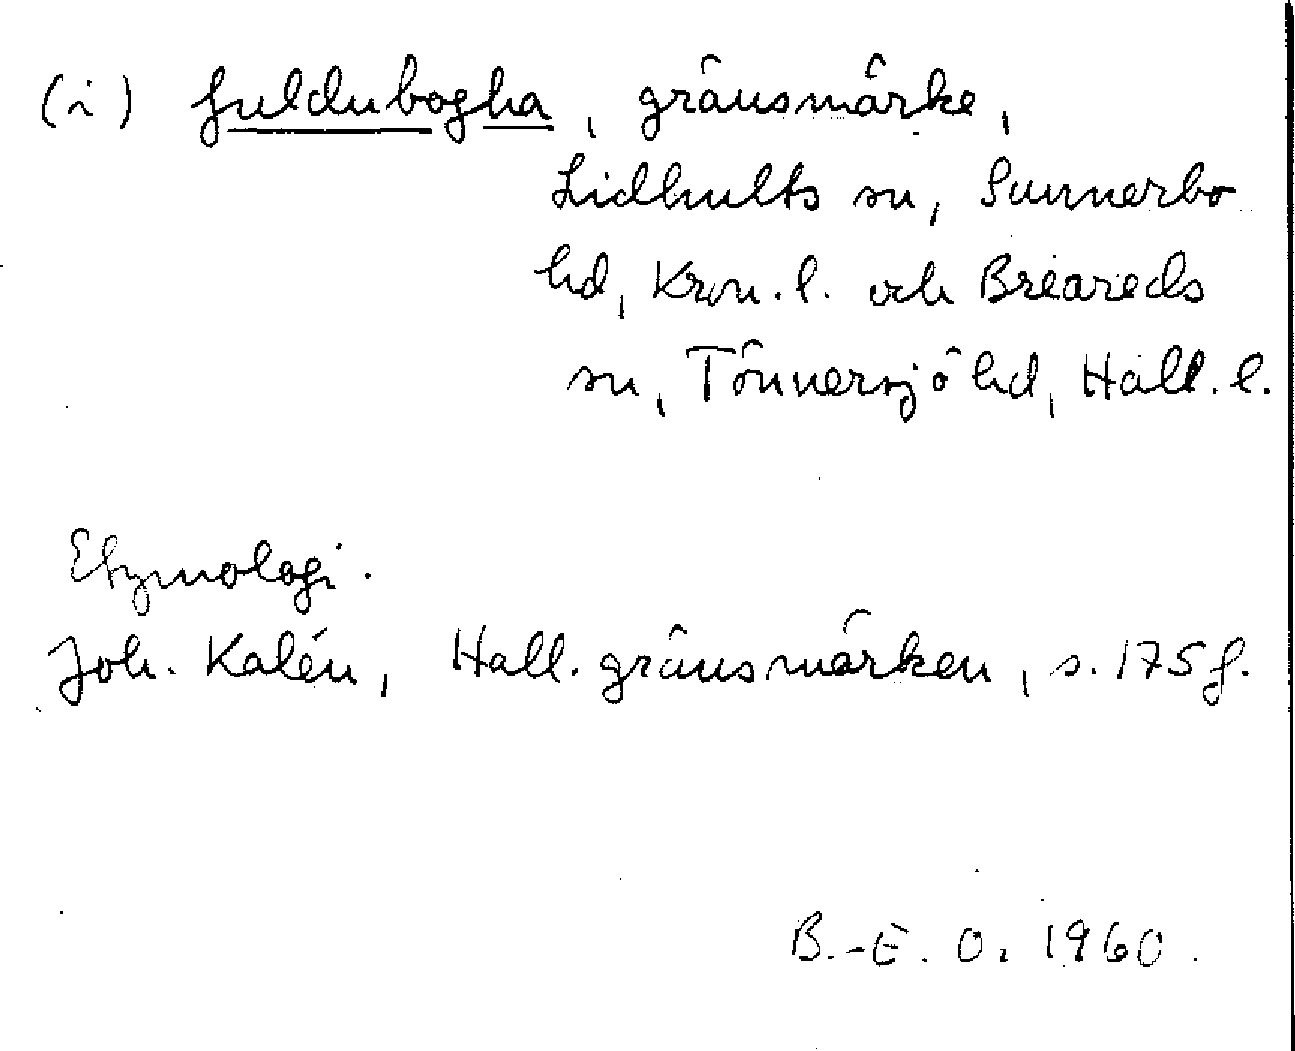 (i) fuldubogha, gränsmärke,
Lidhults sn, Sunnerbo
hd, Kron. l. och Breareds
sn, Tönnersjö hd, Hall. l.
Etymologi.
Joh. Kalén, Hall. gränsmärken, s. 175 f.
B.-E. O. 1960.